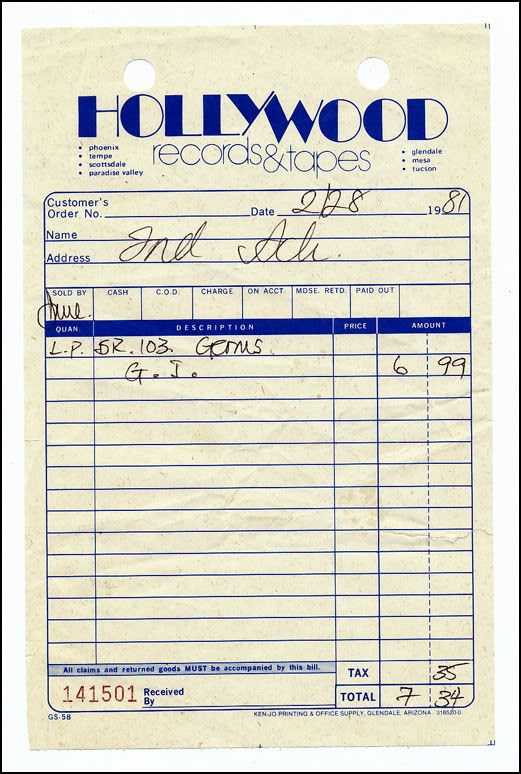 HOLLYWOOD
records&tapes
• phoenix
• tempe
• scottsdale
• paradise valley
• glendale
• mesa
• tucson
Customer's
Order No. Date 2/28 1981
Name
Address
SOLD BY CASH C.O.D. CHARGE ON ACCT. MDSE. RETD. PAID OUT
QUAN. DESCRIPTION PRICE AMOUNT
L.P. SR. 103. GERMS.
G. I. 6 99
All claims and returned goods MUST be accompanied by this bill. TAX 35
141501 Received
By TOTAL 7 34
GS-58 KEN-JO PRINTING & OFFICE SUPPLY, GLENDALE, ARIZONA 316520-0